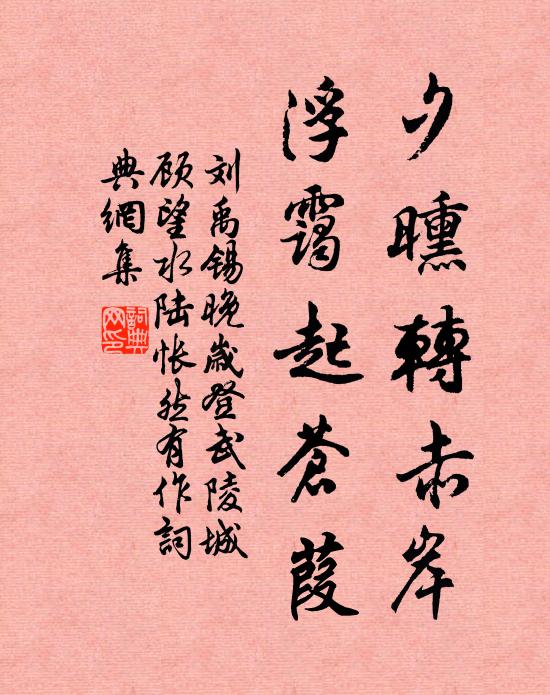 夕曛轉赤岸
浮靄起蒼葭
刘禹锡晚歲登武陵城
顾望水陆怅然有作詞
典網集
詞典
网印